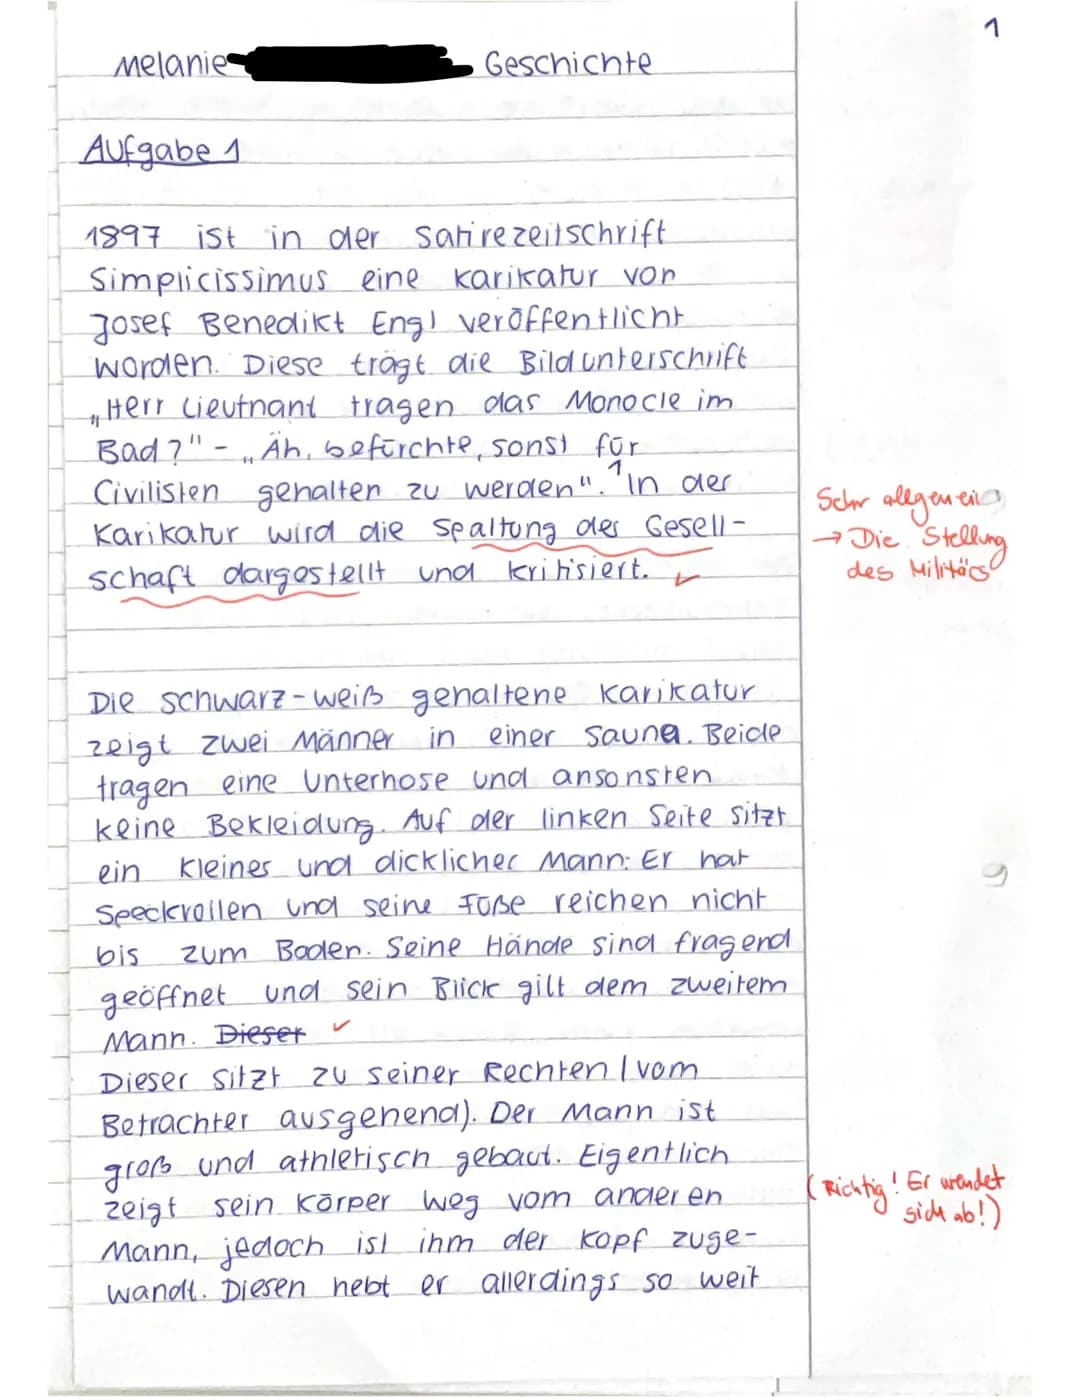 1
Melanie Geschichte
Aufgabe 1
1897 ist in der Satirezeitschrift
Simplicissimus eine Karikatur von
Josef Benedikt Engl veröffentlicht
worden. Diese trägt die Bildunterschrift
„Herr Lieutnant tragen das Monocle im
Bad?" - „Äh, befürchte, sonst für
Civilisten gehalten zu werden".¹ In der
Karikatur wird die Spaltung der Gesell-
schaft dargestellt und kritisiert. ✓
Sehr allgemein
→ Die Stellung
des Militärs
Die schwarz-weiß gehaltene Karikatur
zeigt zwei Männer in einer Sauna. Beide
tragen eine Unterhose und ansonsten
keine Bekleidung. Auf der linken Seite sitzt
ein kleines und dicklicher Mann: Er hat
Speckrollen und seine Füße reichen nicht
bis zum Boden. Seine Hände sind fragend
geöffnet und sein Blick gilt dem zweitem
Mann. Dieser ✓
Dieser sitzt zu seiner Rechten (vom
Betrachter ausgehend). Der Mann ist
groß und athletisch gebaut. Eigentlich
zeigt sein Körper weg vom anderen
Mann, jedoch ist ihm der Kopf zuge-
wandt. Diesen hebt er allerdings so weit
(Richtig! Er wendet
sich ab!)